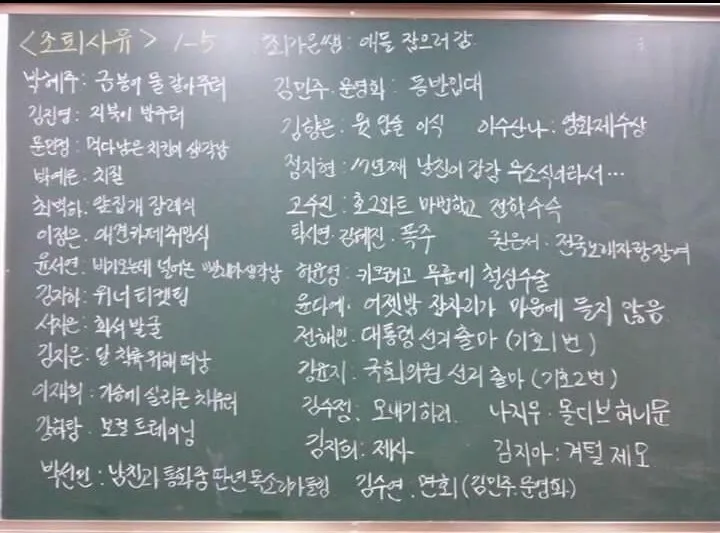 <조퇴사유> 1-5
최가은쌤: 애들 잡으러 감
박혜주: 금붕이 물 갈아주러
김진영: 거북이 밥주러
문민정: 먹다남은 치킨이 생각남
박예른: 치질
최벽하: 앞집개 장례식
이정은: 애견카페취임식
윤서연: 비가오는데 널어논 빨래가 생각남
김자하: 위너티켓팅
서지은: 화석 발굴
김지은: 달 착륙 위해 떠남
이재희: 가슴에 실리콘 채우러
강하랑: 보컬 트레이닝
박선민: 남친과 통화중 딴년 목소리가 들림
김민주. 문영화: 동반입대
김향은: 윗 입술 이식
이수산나: 영화제수상
정지현: 17년째 남친이 감감 무소식이라서...
고수진: 호그와트 마법학교 전학수속
탁시연. 김혜진. 폭주
권은서: 전국노래자랑참여
허윤영: 키크려고 무릎에 철심수술
윤다예. 어젯밤 잠자리가 마음에 들지 않음
전해인. 대통령 선거출마 (기호1번)
강윤지: 국회의원 선거 출마 (기호2번)
김수정. 모내기하러.
나지우. 몰디브허니문
김지희: 제사
김지아: 겨털 제모
김수연. 면회 (김민주.문영화)